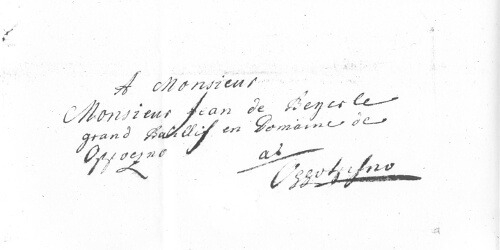 A Monsieur
Monsieur Jean de Beyerle
grand Baillif en Domaine de
a